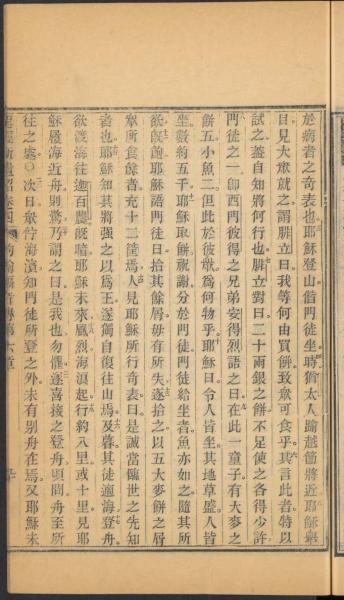 於病者之奇表也耶穌登山偕門徒坐時猶太人踰越節將近耶穌舉
目見大眾就之謂腓立曰我等何由買餅致眾可食乎其言此者特以
試之蓋自知將何行也腓立對曰二十兩銀之餅不足使之各得少許
門徒之一即西門彼得之兄弟安得烈語之曰在此一童子有大麥之
餅五小魚二但此於彼眾為何物乎耶穌曰令人皆坐其地草盛人皆
坐數約五千耶穌取餅祝謝分於門徒門徒給坐者魚亦如之隨其所
欲既飽耶穌語門徒曰拾其餘屑毋有所失遂拾之以五大麥餅之屑
眾所食餘者充十二筐焉人見耶穌所行奇表曰是誠當臨世之先知
者也耶穌知其將強之以為王遂獨自復往山焉及暮其徒適海登舟
欲渡海往迦百農既暗耶穌未來風烈海浪起行約八里或十里見耶
穌履海近舟則驚乃謂之曰是我也勿懼遂喜接之登舟頃間舟至所
往之處○次日眾佇海濱知門徒所登之外未有別舟在焉又耶穌未
新遺詔 約翰福音傳第六章